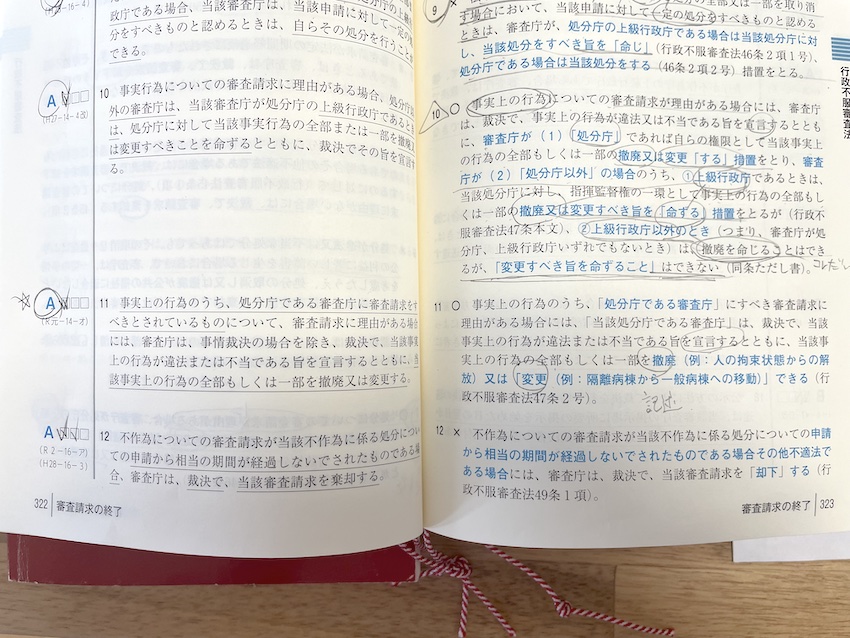 政庁である場合、当該審査庁は、当該申請に対して一定の処
分をすべきものと認めるときは、自らその処分を行うことが
できる。
A
(H27-14-4改)
10 事実行為についての審査請求に理由がある場合、処分庁以
外の審査庁は、当該審査庁が処分庁の上級行政庁であるとき
は、処分庁に対して当該事実行為の全部または一部を撤廃
は変更すべきことを命ずるとともに、裁決でその旨を宣言す
る。
☆ A
(R元-14-オ)
11 事実上の行為のうち、処分庁である審査庁に審査請求をす
べきとされているものについて、審査請求に理由がある場合
には、審査庁は、事情裁決の場合を除き、裁決で、当該事実
上の行為が違法または不当である旨を宣言するとともに、当
該事実上の行為の全部もしくは一部を撤廃又は変更する。
A
(R2-16-ア)
(H28-16-3)
12 不作為についての審査請求が当該不作為に係る処分につい
ての申請から相当の期間が経過しないでされたものである場
合、審査庁は、裁決で、当該審査請求を棄却する。
322 審査請求の終了
9 ×
す場合において、当該申請に対して一定の処分をすべきものと認める
ときは、審査庁が、処分庁の上級行政庁である場合は当該処分庁に対
し、当該処分をすべき旨を「命じ」(行政不服審査法46条2項1号)、
処分庁である場合は当該処分をする(46条2項2号)措置をとる。
10 ○ 事実上の行為についての審査請求が理由がある場合には、審査庁
は、裁決で、事実上の行為が違法又は不当である旨を宣言するととも
に、審査庁が(1)「処分庁」であれば自らの権限として当該事実上
の行為の全部もしくは一部の撤廃又は変更「する」措置をとり、審査
庁が(2)「処分庁以外」の場合のうち、①上級行政庁であるときは、
当該処分庁に対し、指揮監督権の一環として事実上の行為の全部もし
くは一部の撤廃又は変更すべき旨を「命ずる」措置をとるが(行政不
服審査法47条本文)、②上級行政庁以外のとき(つまり、審査庁が処
分庁、上級行政庁いずれでもない時)は「撤廃を命じることはでき
るが、「変更すべき旨を命ずること」はできない(同条ただし書)。
11 ○ 事実上の行為のうち、「処分庁である審査庁」にすべき審査請求に
理由がある場合には、「当該処分庁である審査庁」は、裁決で、当該
事実上の行為が違法または不当である旨を宣言するとともに、当該事
実上の行為の全部もしくは一部を撤廃(例:人の拘束状態からの解
放)又は「変更(例:隔離病棟から一般病棟への移動)」できる(行
政不服審査法47条2号)。
記述
12 × 不作為についての審査請求が当該不作為に係る処分についての申請
から相当の期間が経過しないでされたものである場合その他不適法で
ある場合には、審査庁は、裁決で、当該審査請求を「却下」する(行
政不服審査法49条1項)。
審査請求の終了 323
行政不服審査法